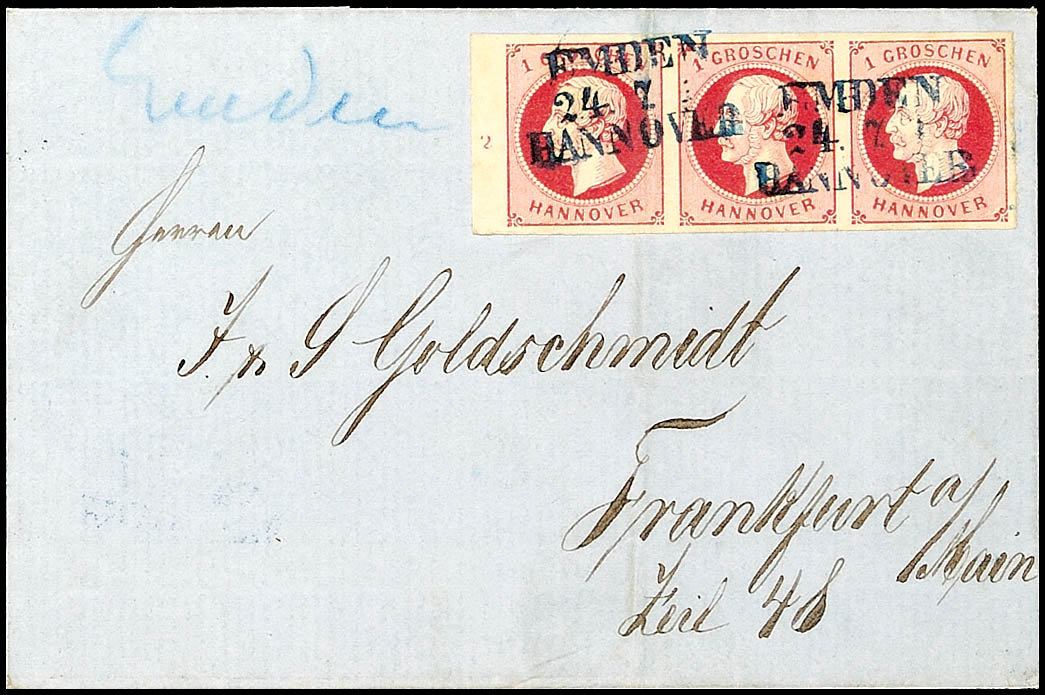 Emden
1 GROSCHEN
HANNOVER
1 GROSCHEN
HANNOVER
1 GROSCHEN
HANNOVER
2
EMDEN
24. 7
HANNOVER
EMDEN
24. 7
HANNOVER
Herren
J & S Goldschmidt
Frankfurt a/
Main
Zeil 48